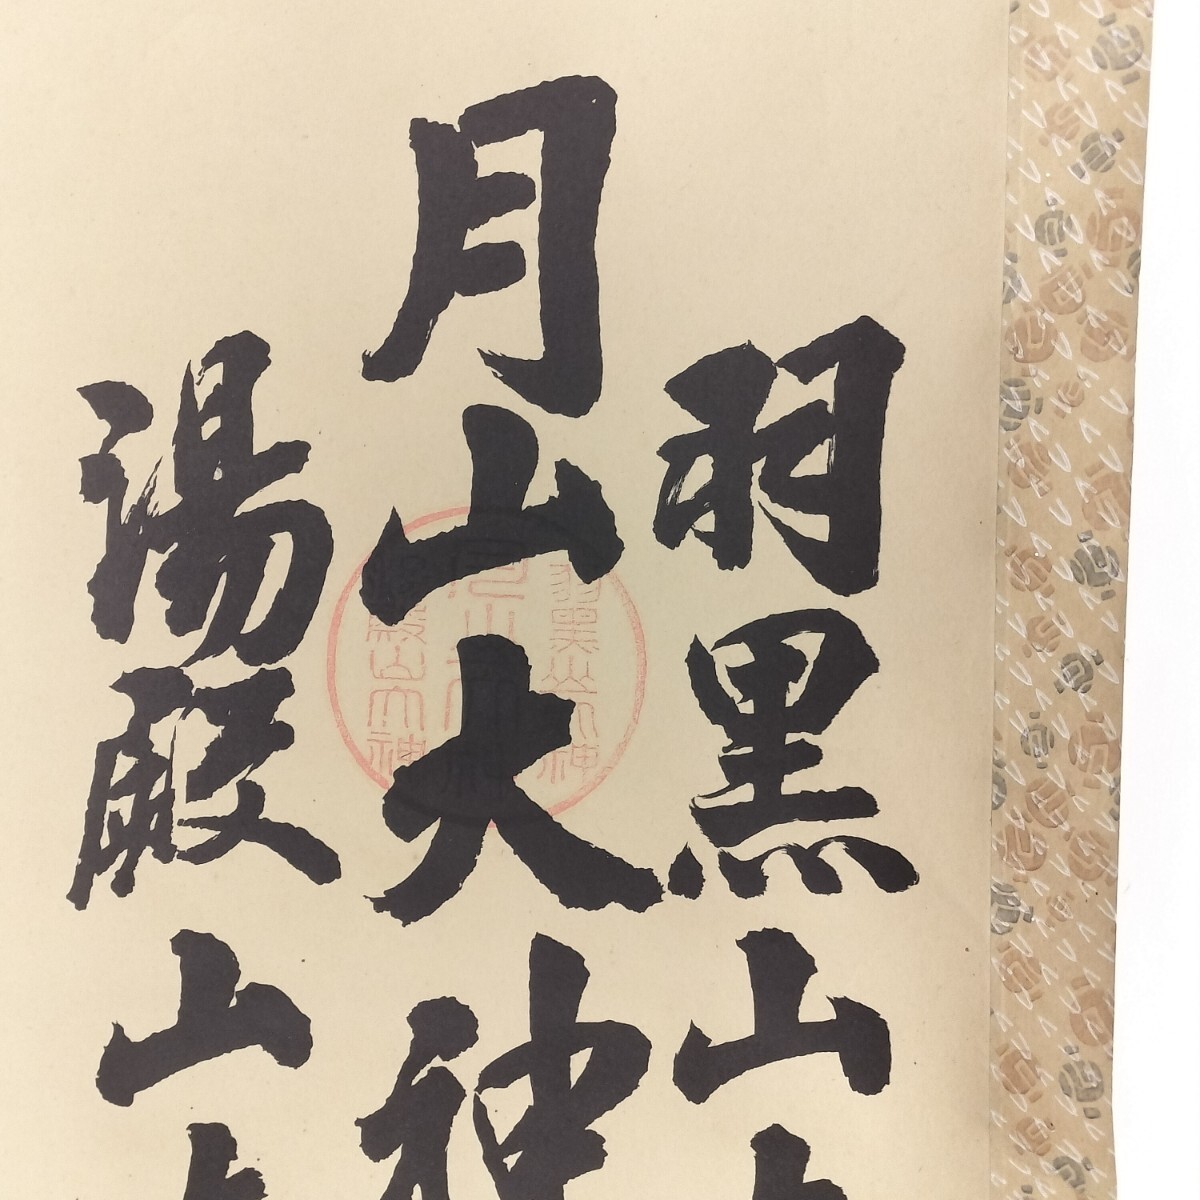 羽黒山大
月山大神
湯殿山大
羽黒山大神
月山大神
湯殿山大神